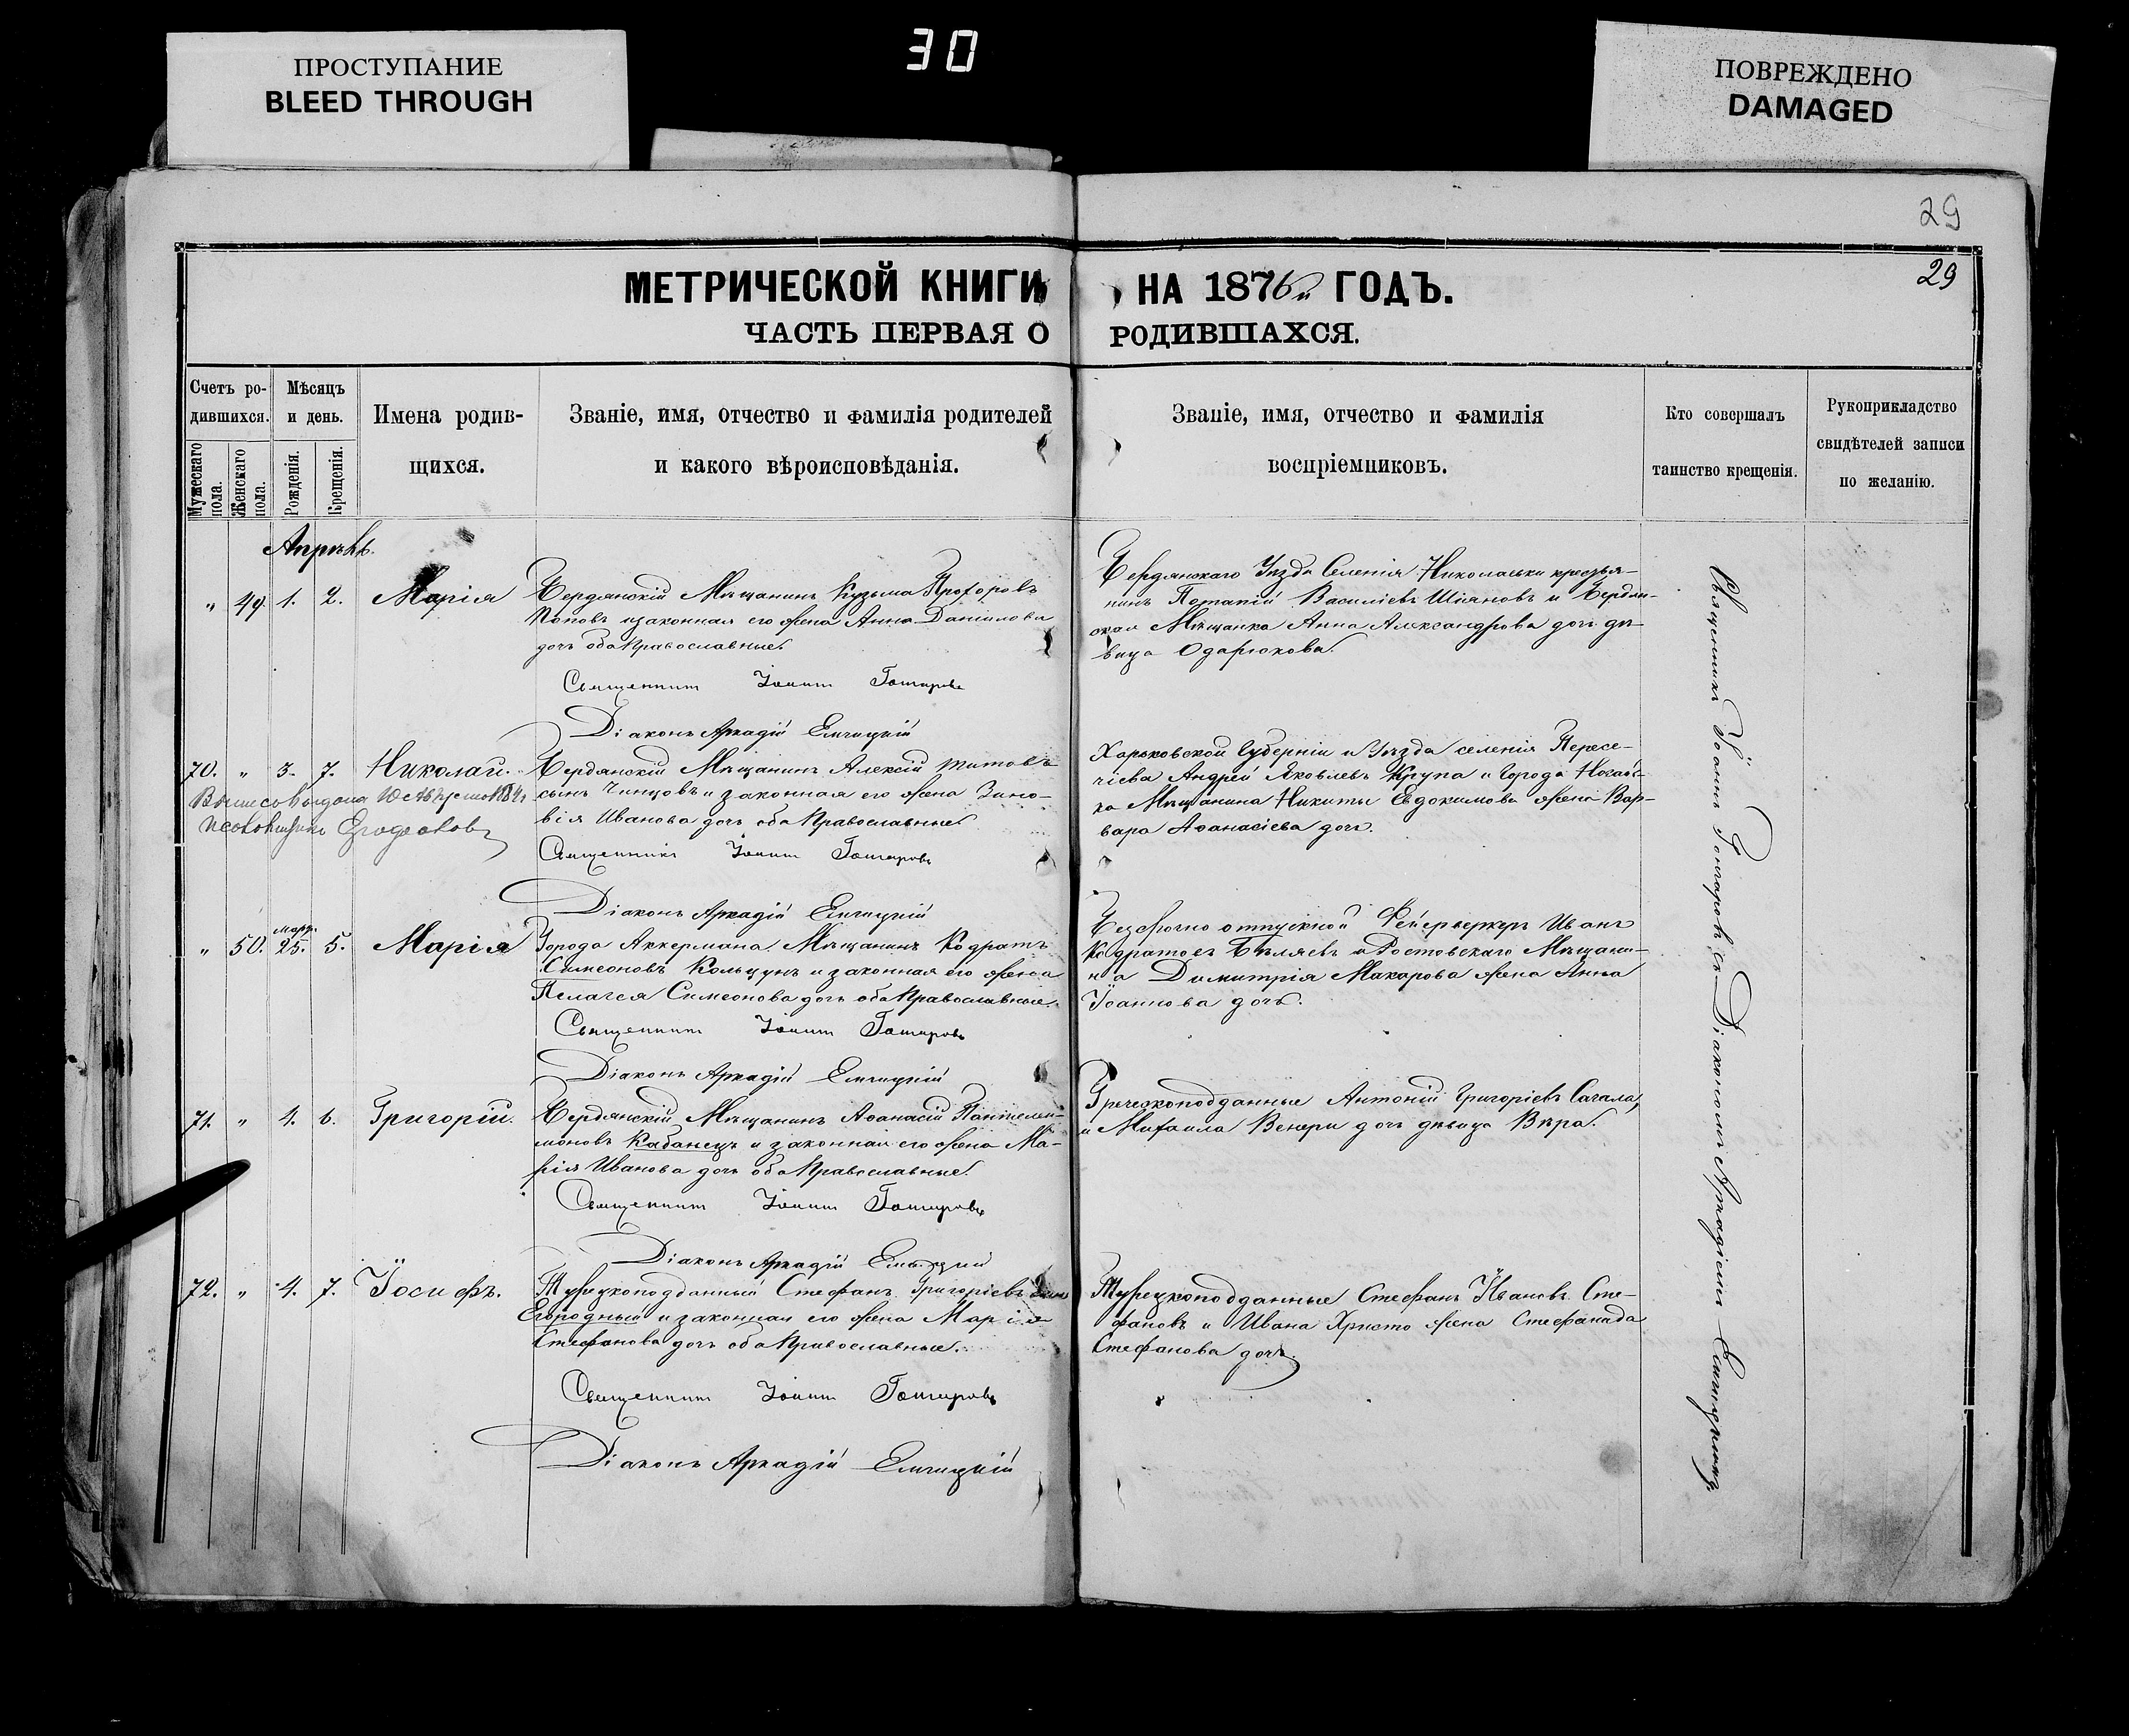 ПРОСТУПАНИЕ
BLEED THROUGH
30
ПОВРЕЖДЕНО
DAMAGED
29
29
МЕТРИЧЕСКОЙ КНИГИ НА 1876й ГОДЪ.
ЧАСТЬ ПЕРВАЯ О РОДИВШАХСЯ.
Счетъ ро-
дившихся.
Мужескаго пола.
Женскаго пола.
Мѣсяцъ
и день.
Рожденія.
Крещенія.
Имена родив-
щихся.
Званіе, имя, отчество и фамилія родителей
и какого вѣроисповѣданія.
Званіе, имя, отчество и фамилія
воспріемниковъ.
Кто совершалъ
таинство крещенія.
Рукоприкладство
свидѣтелей записи
по желанію.
Апрѣль.
" 49. 1. 2. Марія
Бердянскій Мѣщанинъ Кузьма Прохоровъ
Поповъ и законная его жена Анна Даніилова
дочь оба Православные.
Священникъ Іоаннъ Гончаровъ
Діаконъ Аркадій Емчицкій
Бердянскаго Уѣзда Селенія Николаевки крестья-
нинъ Потапій Василіевъ Шіяновъ и Бердян-
ская Мѣщанка Анна Александрова дочь дѣ-
вица Одарюкова.
70. " 3. 7. Николай.
Бердянскій Мѣщанинъ Алексій Титовъ
сынъ Чинцовъ и законная его жена Зино-
вія Иванова дочь оба Православные
Священникъ Іоаннъ Гончаровъ
Діаконъ Аркадій Емчицкій
Харьковской Губерніи и Уѣзда селенія Пересе-
чіева Андрей Яковлевъ Крупа и Города Ногайс-
ка Мѣщанина Никиты Евдокимова жена Вар-
вара Аѳанасіева дочь.
" 50. Март. 25. 5. Марія
Города Аккермана Мѣщанинъ Кодратъ
Симеоновъ Кольцунъ и законная его жена
Пелагея Симеонова дочь оба Православные.
Священникъ Іоаннъ Гончаровъ
Діаконъ Аркадій Емчицкій
Безсрочно отпускной Фейерверкеръ Иванъ
Кодратовъ Бѣляевъ и Ростовскаго Мѣщани-
на Димитрія Макарова жена Анна
Іоаннова дочь.
71. " 4. 6. Григорій.
Бердянскій Мѣщанинъ Аѳанасій Пантелеи-
моновъ Кабанецъ и законная его жена Ма-
рія Иванова дочь оба Православные.
Священникъ Іоаннъ Гончаровъ
Діаконъ Аркадій Емчицкій
Греческоподданные Антоній Григоріевъ Сагала,
и Михаила Венери дочь дѣвица Вѣра.
72. " 4. 7. Іосифъ.
Турецкоподданный Стефанъ Григоріевъ
Егородный и законная его жена Марія
Стефанова дочь оба Православные.
Священникъ Іоаннъ Гончаровъ
Діаконъ Аркадій Емчицкій
Турецкоподданные Стефанъ Ивановъ Сте-
фановъ и Ивана Христо жена Стефанида
Стефанова дочь.
Священникъ Іоаннъ Гончаровъ съ Діакономъ Аркадіемъ Емчицкимъ